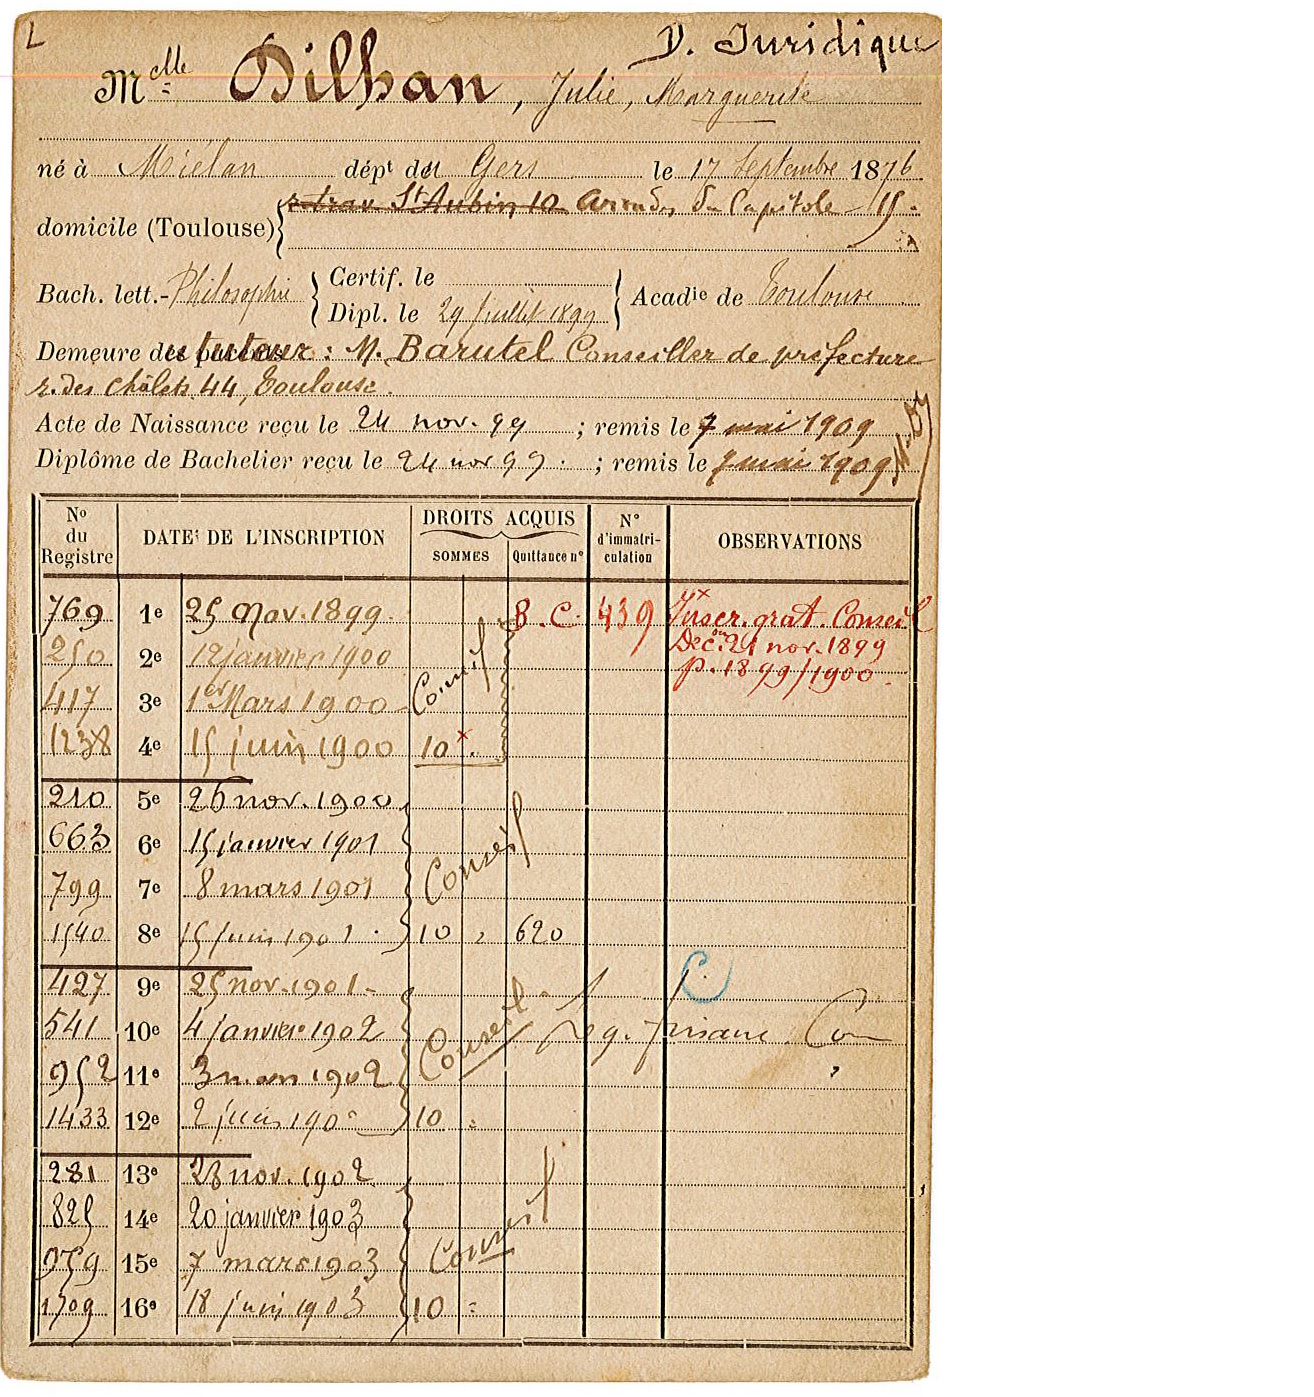 L
D. Juridique
Melle Dilhan, Julie, Marguerite
né à Miélan dépt du Gers le 17 Septembre 1876
r. trav. St Aubin 10 Arcades du Capitole 15
domicile (Toulouse)
Certif. le
Bach. lett.- Philosophie Acadie de Toulouse
Dipl. le 29 Juillet 1899
Demeure du tuteur : M. Barutel Conseiller de préfecture
r. des Châlets, 44, Toulouse.
Acte de Naissance reçu le 24 nov. 99 ; remis le 7 mai 1909
Diplôme de Bachelier reçu le 24 nov 99. ; remis le 7 mai 1909
No du Registre DATES DE L'INSCRIPTION DROITS ACQUIS SOMMES Quittance no No d'immatri-culation OBSERVATIONS
769 1e 25 Nov. 1899. B. C. 439 Inscr. grat. Conseil
Déc. on 21 nov. 1899
250 2e 12 janvier 1900
p. 1899/1900.
417 3e 1er Mars 1900 Conseil
1238 4e 15 juin 1900 10 x
210 5e 26 nov. 1900
663 6e 15 janvier 1901
799 7e 8 mars 1901 Conseil
1540 8e 15 juin 1901. 10 , 620
427 9e 25 nov. 1901. C
541 10e 4 janvier 1902 Conseil Leg. financ. Con
952 11e 3 mars 1902
1433 12e 2 juin 190 10
281 13e 28 nov. 1902
825 14e 20 janvier 1903
959 15e 7 mars 1903 Conseil
1709 16e 18 juin 1903 10